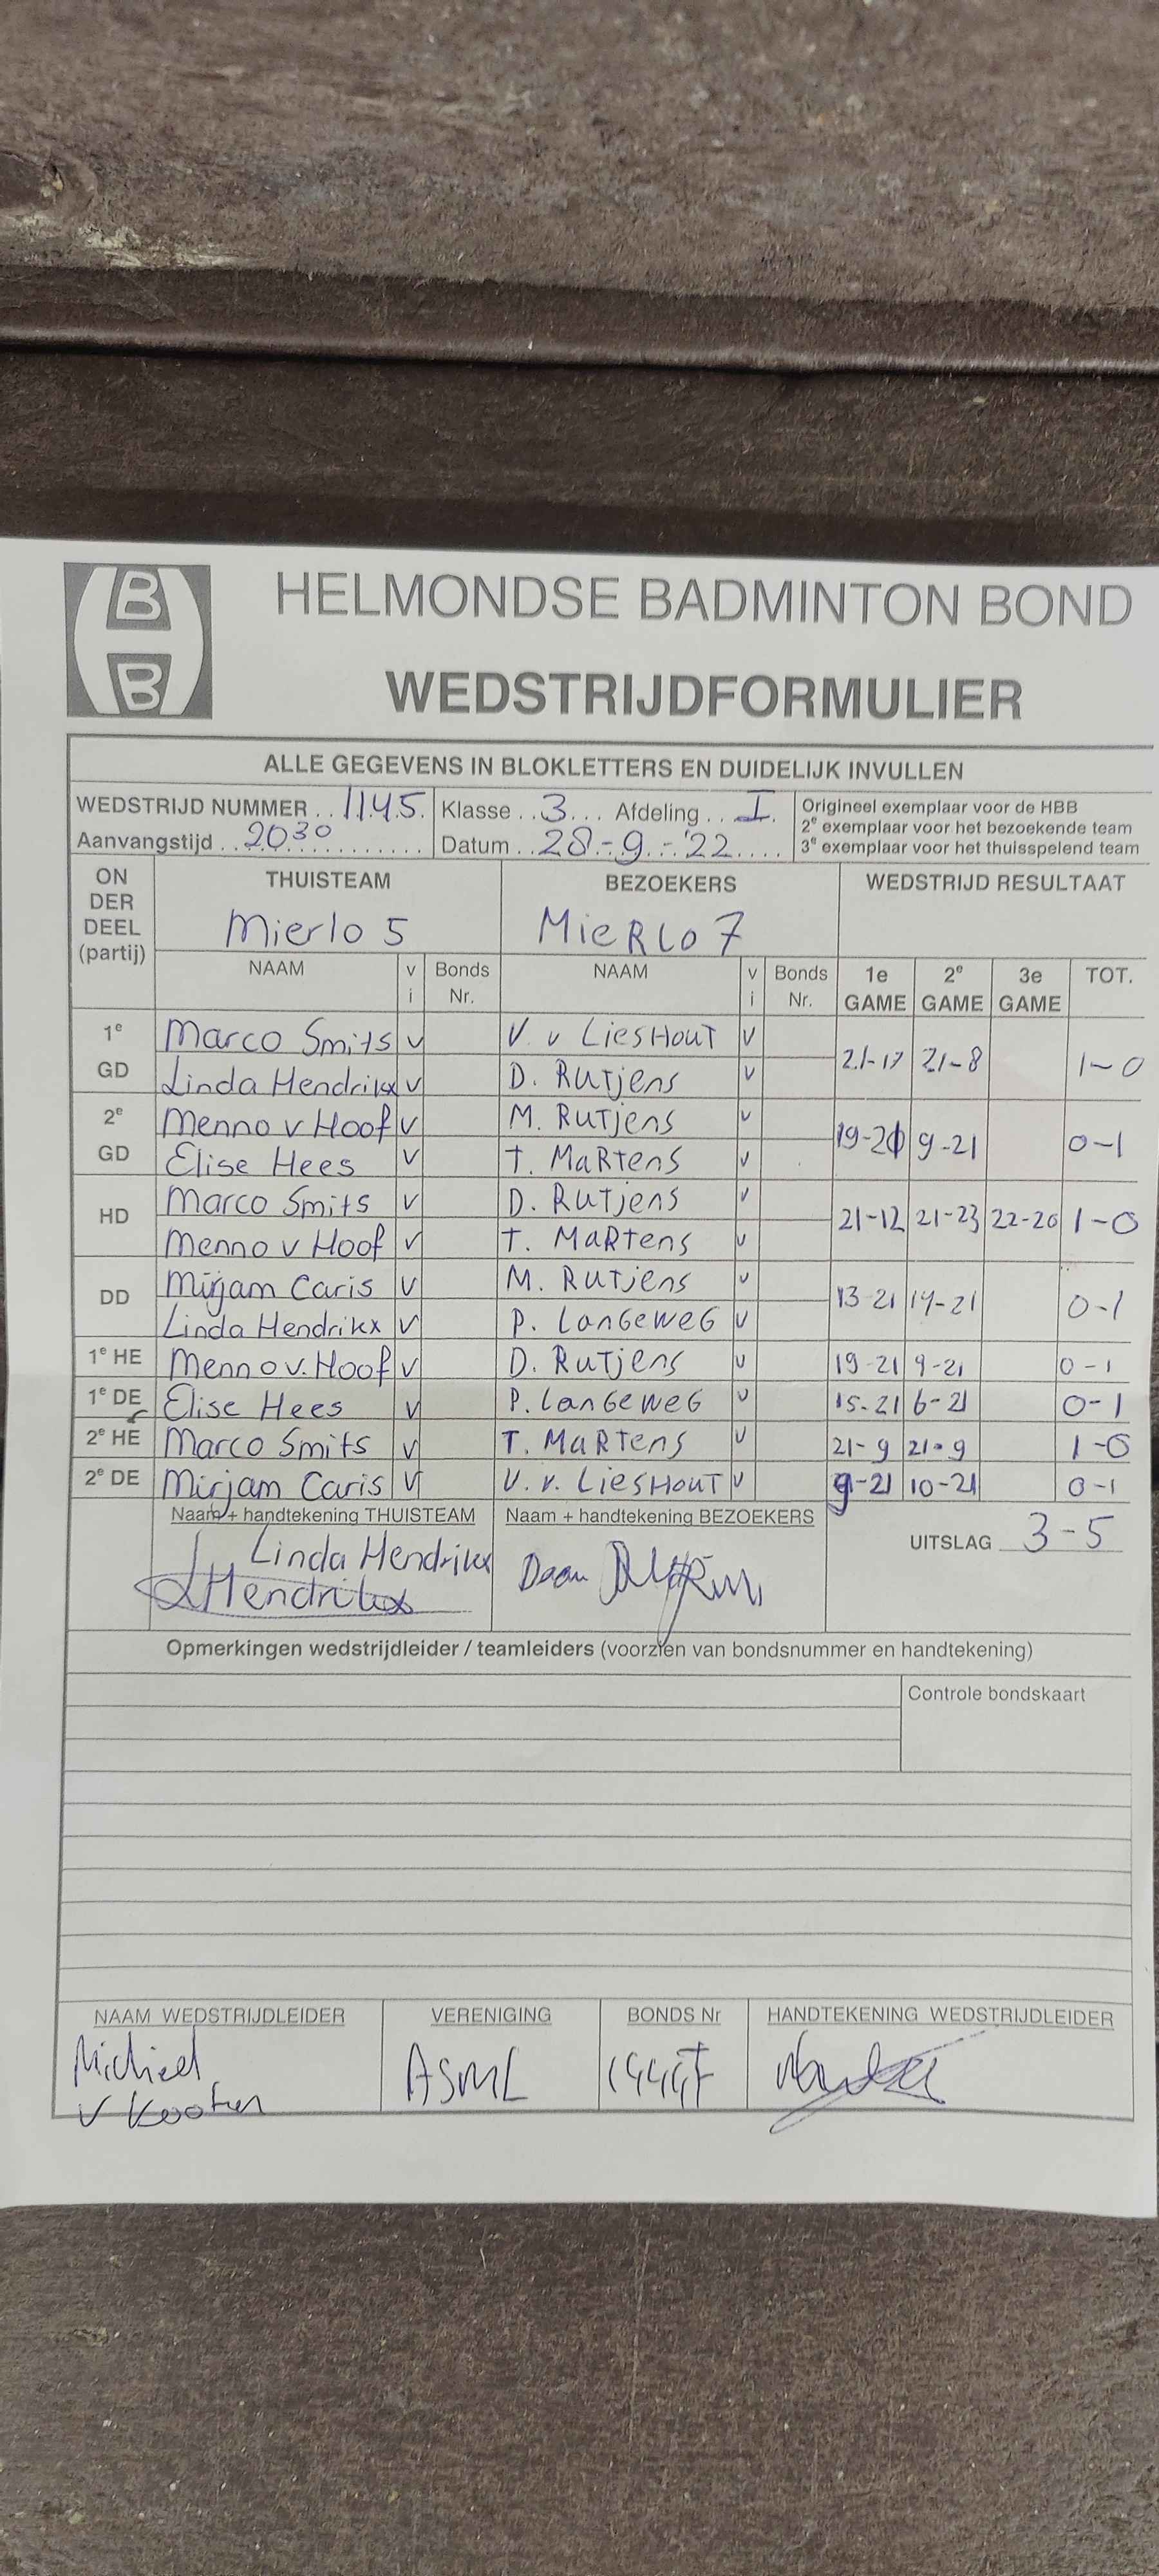 B
B
HELMONDSE BADMINTON BOND
WEDSTRIJDFORMULIER
ALLE GEGEVENS IN BLOKLETTERS EN DUIDELIJK INVULLEN
WEDSTRIJD NUMMER .. 1145. Klasse .. 3... Afdeling .. I. Origineel exemplaar voor de HBB
2e exemplaar voor het bezoekende team
Aanvangstijd .. 2030 .......... Datum .. 28-9-'22 .... 3e exemplaar voor het thuisspelend team
ON DER DEEL (partij) THUISTEAM BEZOEKERS WEDSTRIJD RESULTAAT
Mierlo 5 MieRLo 7
NAAM v i Bonds Nr. NAAM v i Bonds Nr. 1e GAME 2e GAME 3e GAME TOT.
1e GD Marco Smits v V. v LiesHouT v 21-17 21-8 1-0
Linda Hendrikx v D. RuTjens v
2e GD Menno v Hoof v M. RuTjens v 9-21 0-1
Elise Hees v T. MaRTens v
HD Marco Smits v D. RuTjens v 21-12 21-23 22-20 1-0
Menno v Hoof v T. MaRTens v
DD Mirjam Caris v M. RuTjens v 13-21 0-1
Linda Hendrikx v P. LanGeweG v
1e HE Menno v. Hoof v D. RuTjens v 19-21 9-21 0-1
1e DE Elise Hees v P. LanGeweG v 15-21 6-21 0-1
2e HE Marco Smits v T. MaRTens v 21-9 21-9 1-0
2e DE Mirjam Caris v V. v. LiesHouT v 9-21 10-21 0-1
Naam + handtekening THUISTEAM Naam + handtekening BEZOEKERS UITSLAG 3-5
Linda Hendrikx Daan
LHendrikx
Opmerkingen wedstrijdleider / teamleiders (voorzien van bondsnummer en handtekening)
Controle bondskaart
NAAM WEDSTRIJDLEIDER VERENIGING BONDS Nr HANDTEKENING WEDSTRIJDLEIDER
Michiel ASML
v Kooten